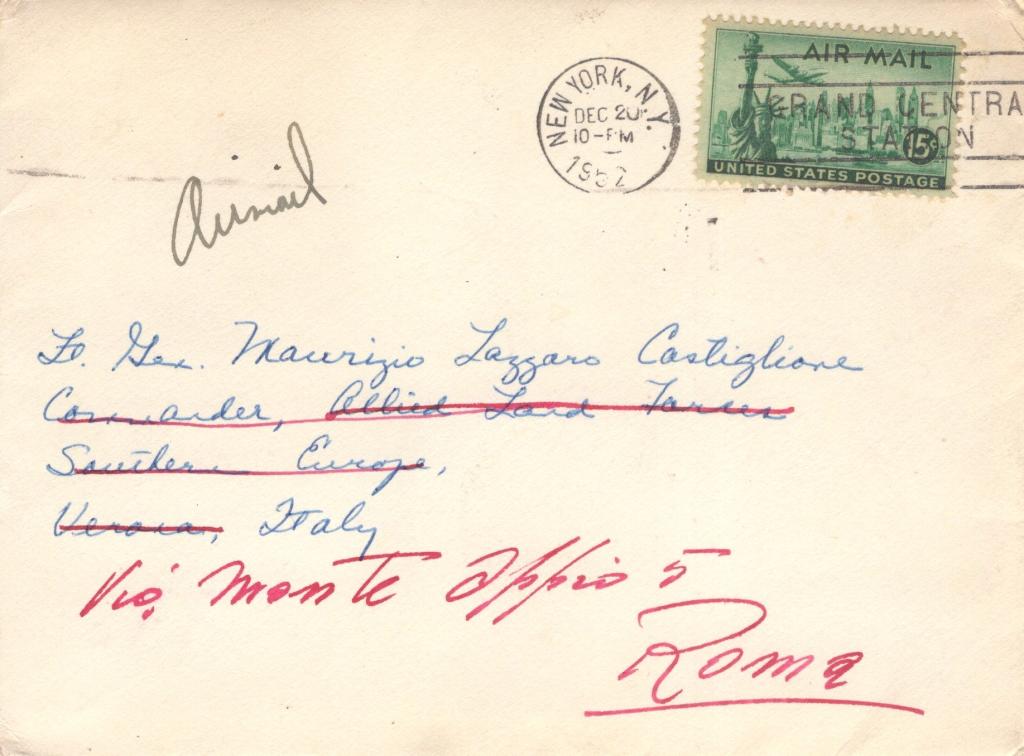 NEW YORK, N.Y.
DEC 20
10-PM
1952
AIR MAIL
GRAND CENTRA
STATION
15¢
UNITED STATES POSTAGE
Airmail
Lt. Gen. Maurizio Lazzaro Castiglione
Commander, Allied Land Forces
Southern Europe,
Verona, Italy
Via Monte Oppio 5
Roma